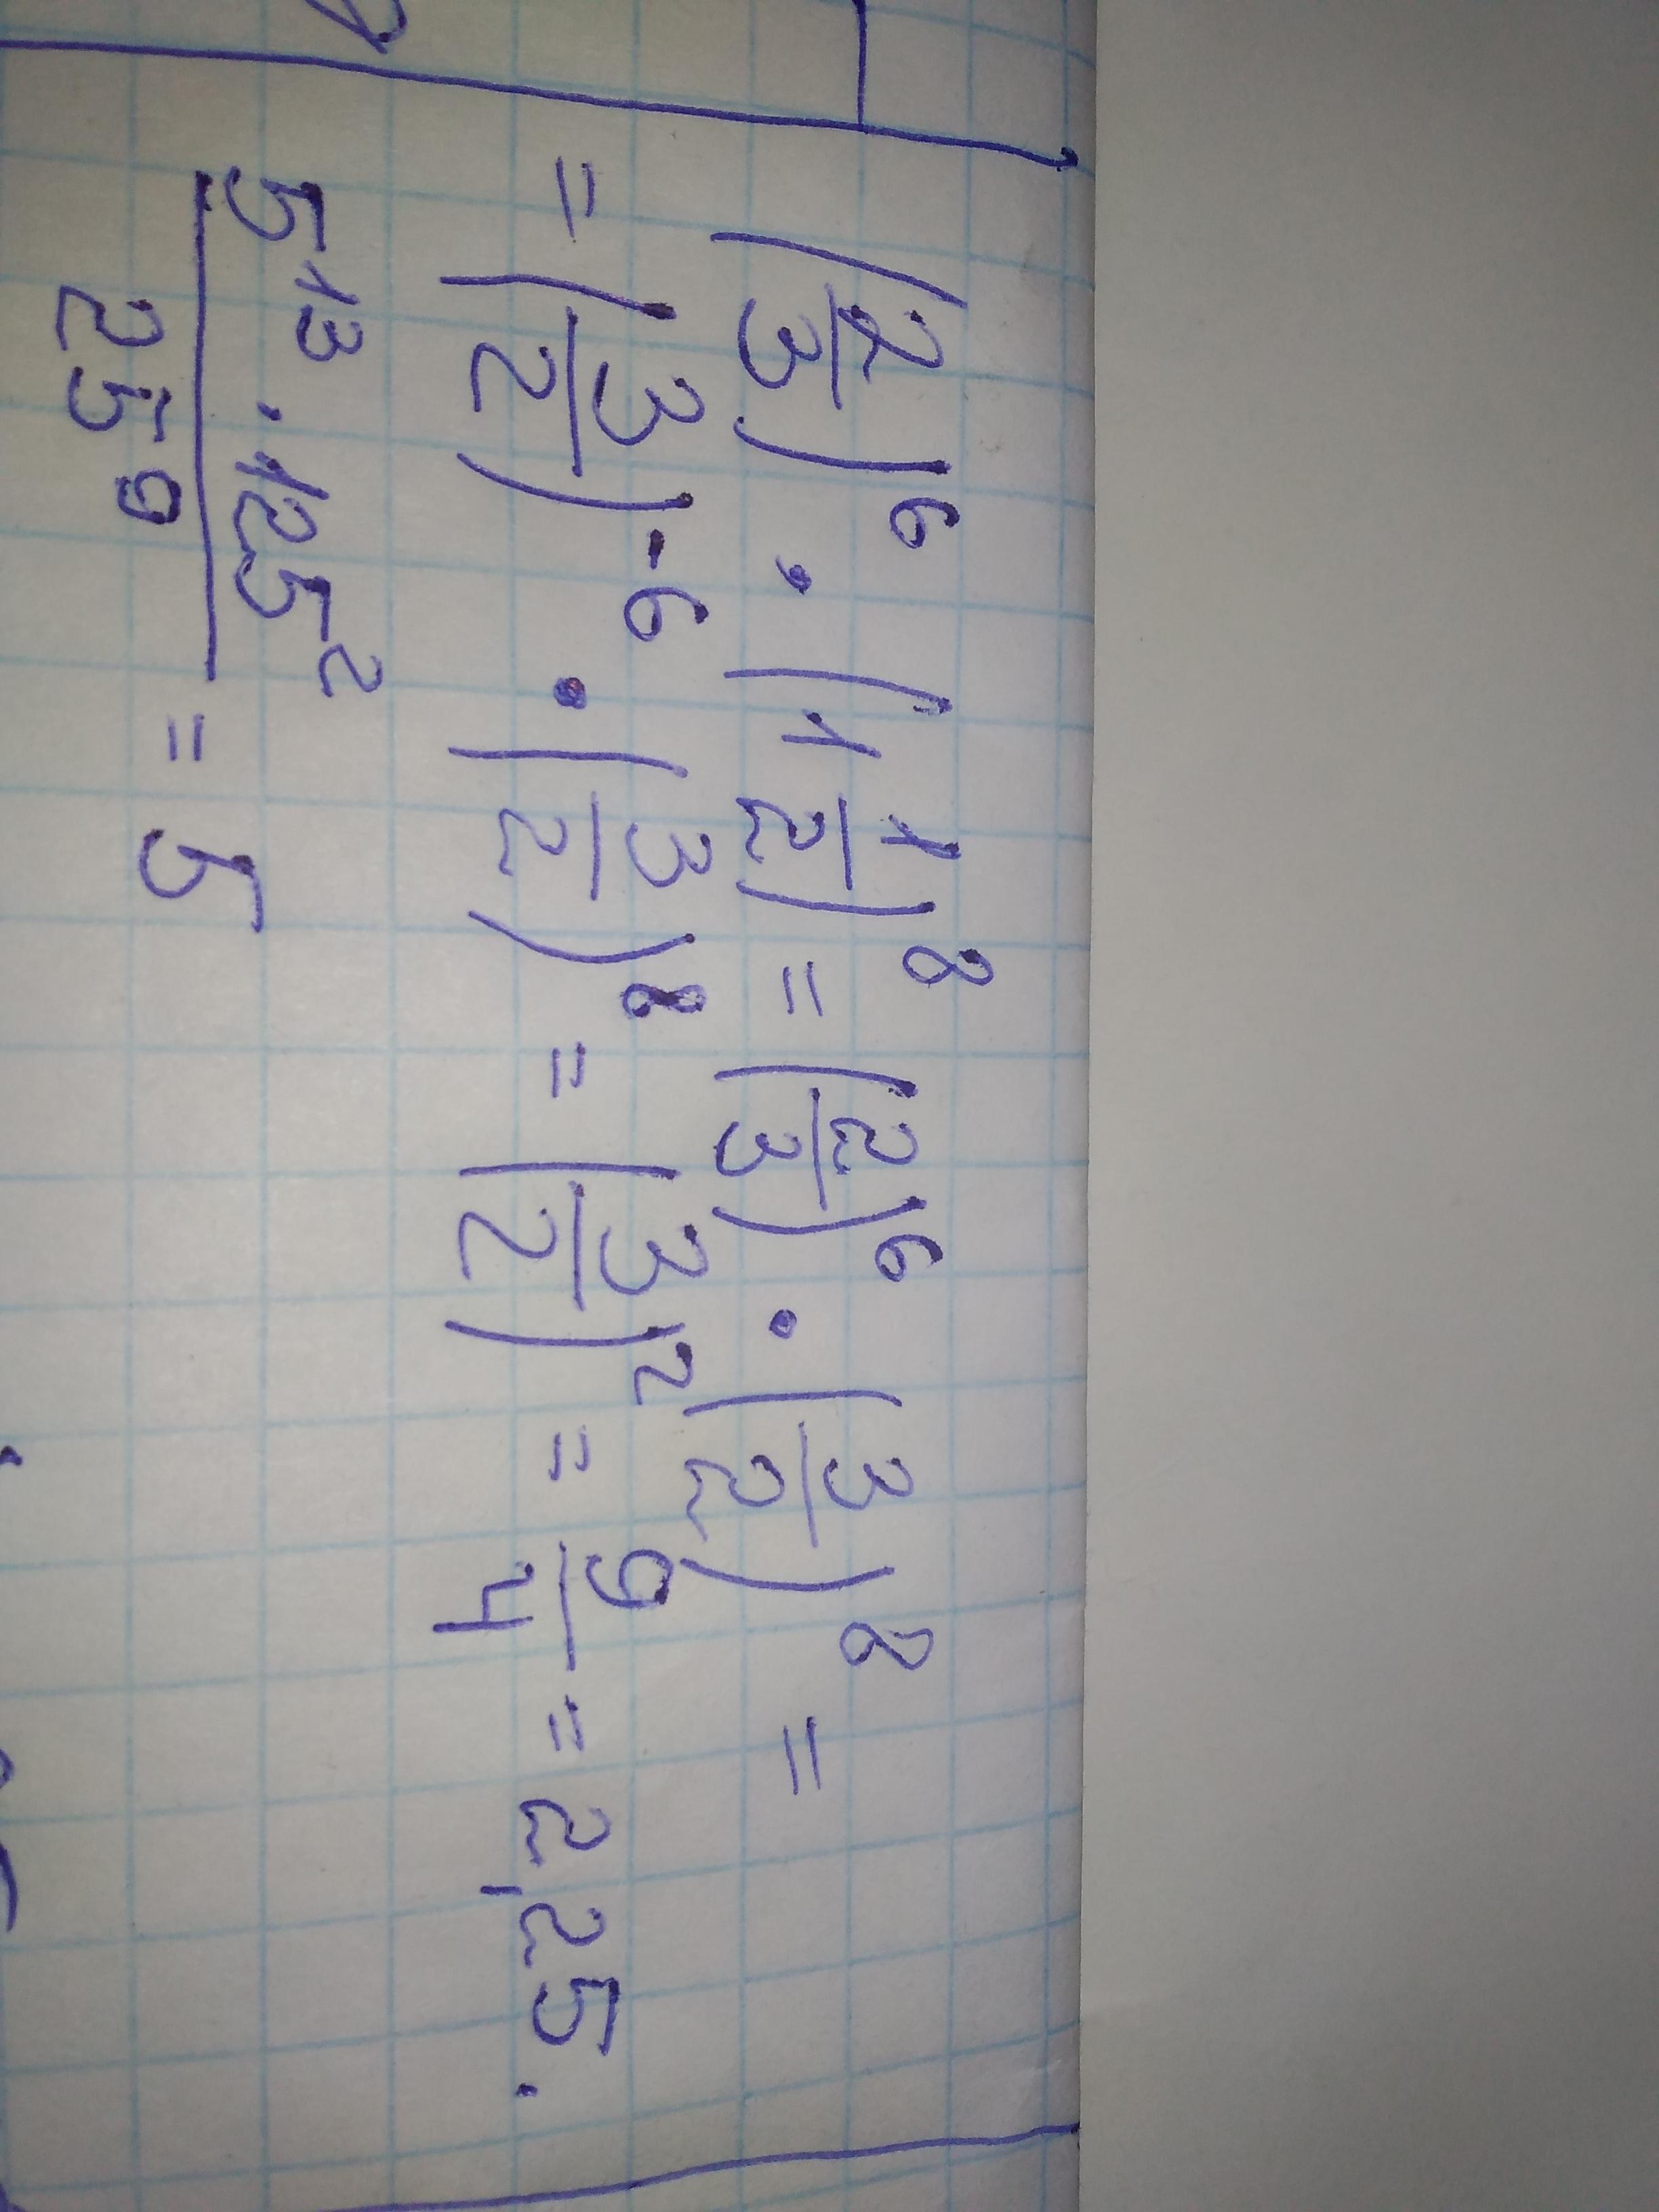 (2/3)^6 · (1 1/2)^8 = (2/3)^6 · (3/2)^8 =
= (3/2)^-6 · (3/2)^8 = (3/2)^2 = 9/4 = 2,25.
5^13 · 125^2 / 25^9 = 5